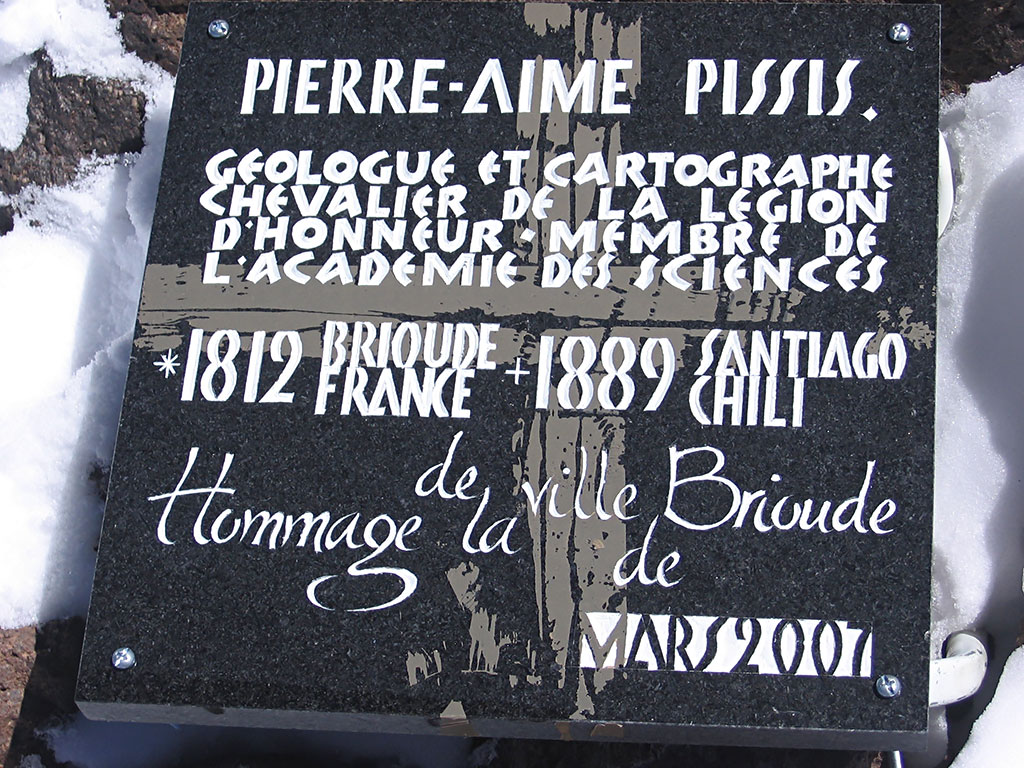 PIERRE-AIME PISSIS.
GEOLOGUE ET CARTOGRAPHE
CHEVALIER DE LA LEGION
D'HONNEUR · MEMBRE DE
L'ACADEMIE DES SCIENCES
*1812 BRIOUDE FRANCE +1889 SANTIAGO CHILI
Hommage de la ville de Brioude
MARS 2007